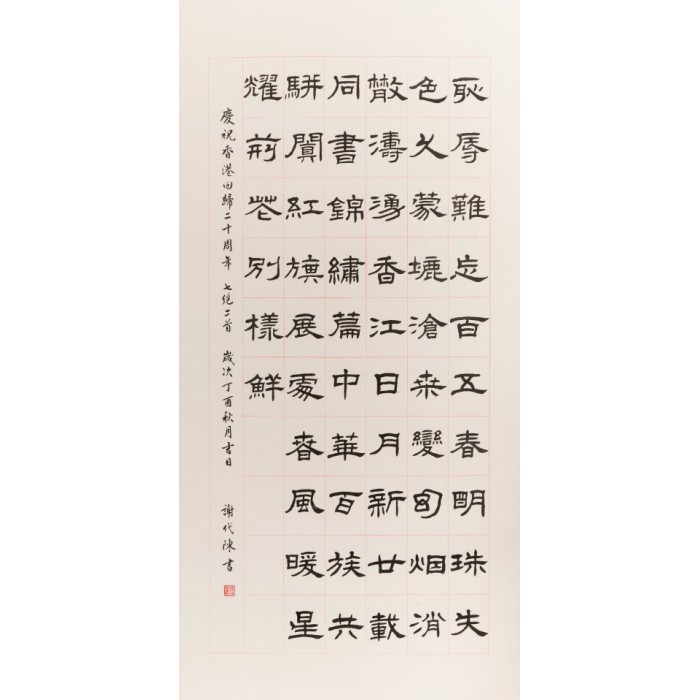 耻辱難忘百五春明珠失
色久蒙塵滄桒變幻烟消
散濤湧香江日月新廿載
同書錦繡篇中華百族共
駢闐紅旗展處春風暖星
耀荊花別樣鮮
慶祝香港回歸二十周年 七絕二首 歲次丁酉秋月吉日 謝代陳書